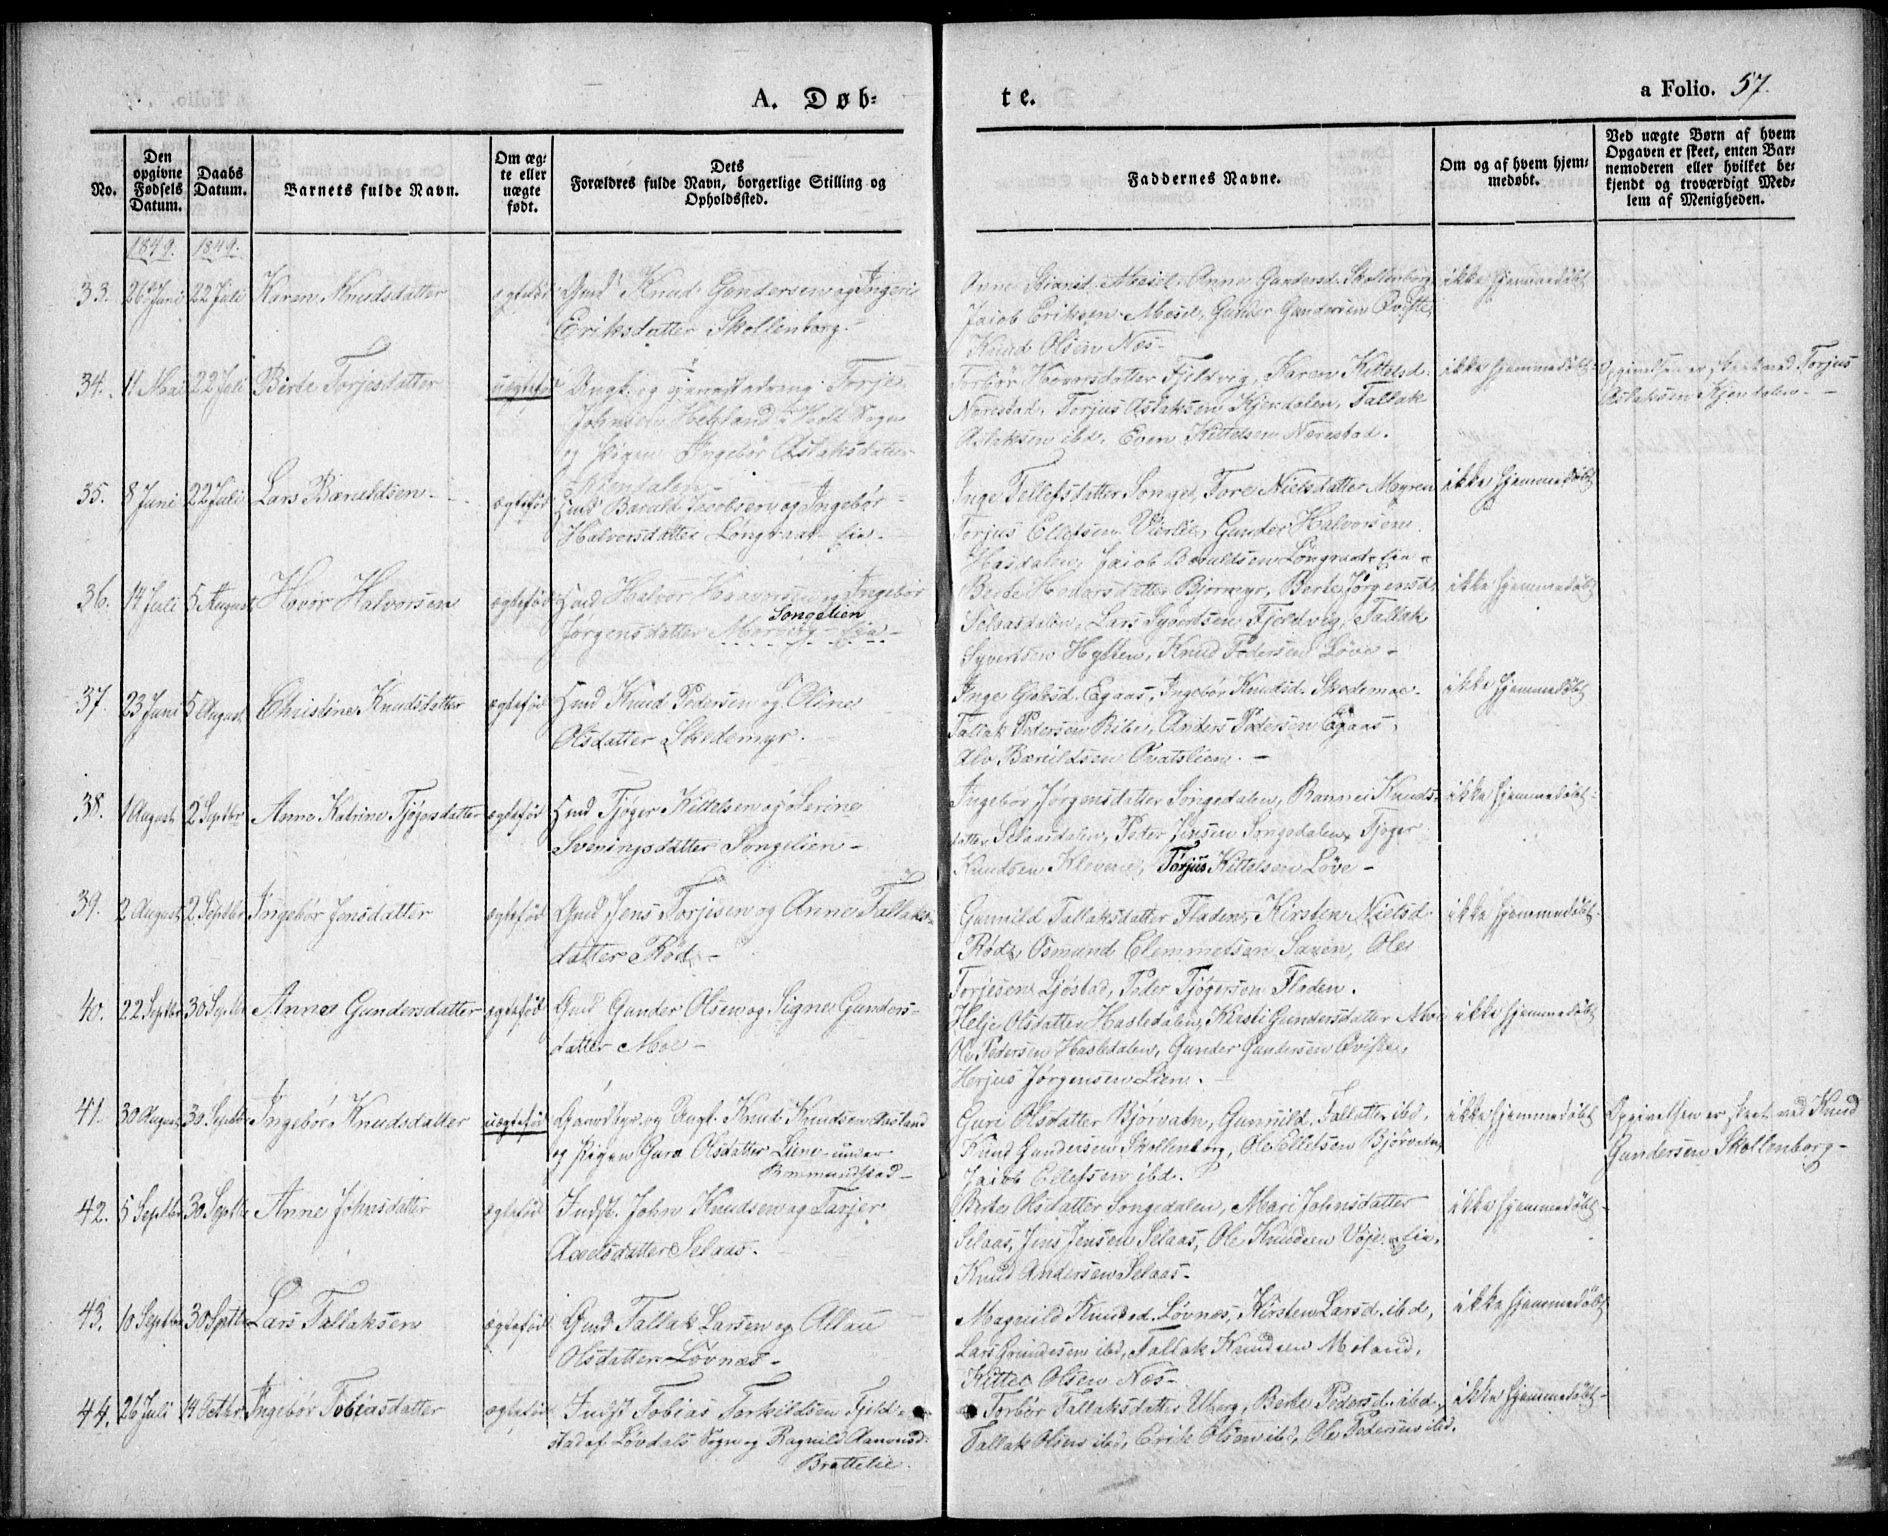 A. Døb-
te.
a Folio. 57.
No.
Den opgivne Fødsels Datum.
Daabs Datum.
Barnets fulde Navn.
Om ægte eller uægte født.
Dets Forældres fulde Navn, borgerlige Stilling og Opholdssted.
Faddernes Navne.
Om og af hvem hjemmedøbt.
Ved uægte Børn af hvem Opgaven er skeet, enten Barnemoderen eller hvilket bekjendt og troværdigt Medlem af Menigheden.
1849. 1849.
33. 26 Juni 22 Juli Karen Knudsdatter ægtefød Gmd Knud Gundersen og Ingeri
Eriksdatter Skollenborg.
Anne Mosel, Anne Gundersd. Skollenborg
Jacob Eriksen Mosel, Gunder Gundersen Qviste,
Knud Olsen Næs-
ikke hjemmedøbt
34. 11 Mai 22 Juli Birte Torjesdatter uægtefød Ungk. og Torje
Johnsen i Holt Sogn
og Pigen Ingebør Aslaksdatter
Kjendalen
Torbør Hovorsdatter Fjeldvig, Karen Kittelsd.
Nerestad, Torjus Aslaksen Kjendalen, Tallak
Aslaksen ibd, Even Kittelsen Nerestad.
ikke hjemmedøbt
Opgivelsen er skeet ved Torjus
Aslaksen Kjendalen.
35. 8 Juni 22 Juli Lars Baruldsen ægtefød Hmd Baruld Jacobsen og Ingebør
Halvorsdatter Longraat Eie.
Inge Tellefsdatter Songe, Tore Nielsdatter Myren
Torjus Ellefsen Vierlie, Gunder Halvorsen
Hasdalen, Jacob Baruldsen Longraat Eie
ikke hjemmedøbt
36. 14 Juli 5 August Hovor Halvorsen ægtefød Hmd Halvor Hovorsen og Ingebør
Songelien
Jørgensdatter Eie
Berte Hovorsdatter Bjormyr, Berte Jørgensd.
Selaasdalen, Lars Syvertsen Fjeldvig, Tallak
Syvertsen Hytten, Knud Pedersen Løve-
ikke hjemmedøbt
37. 23 Juni 5 August Christine Knudsdatter ægtefød Hmd Knud Pedersen og Oline
Olsdatter Skedemyr.
Inge Egaas, Ingebør Knudsd. Skedemoe.
Tallak Pedersen Ribe, Anders Pedersen Egaas,
Alv Baruldsen Qvatslien.-
ikke hjemmedøbt
38. 1 August 2 Septbr Anne Katrine Tjøgersdatter ægtefød Hmd Tjøger Kittelsen og Serine
Sveningsdatter Songelien-
Ingebør Jørgensdatter Songedalen, Knuds-
datter Selaasdalen, Peder Jensen Songedalen, Tjøger
Knudsen Klevene, Torjus Kittelsen Løve-
ikke hjemmedøbt
39. 2 August 2 Septbr Ingebør Jensdatter ægtefød Gmd Jens Torjesen og Anne Tallaks-
datter Rød-
Gunnild Tallaksdatter Fladen, Kirsten Nielsd.
Rød, Osmund Clemmetsen Saxen, Ole
Torjesen Ljøstad, Peder Tjøgersen Fladen.
ikke hjemmedøbt
40. 22 Septbr 30 Septbr Anne Gundersdatter ægtefød Gmd Gunder Olsen og Signe Gunders-
datter Moe-
Helje Olsdatter Hasledalen, Kirsti Gundersdatter Moe
Ole Pedersen Hasledalen, Gunder Gundersen Qviste,
Herjus Jørgensen Lien.
ikke hjemmedøbt
41. 30 August 30 Septbr Ingebør Knudsdatter uægtefød og Ungk. Knud Knudsen Aasland
og Pigen Guro Olsdatter Liene under
Rommundstad-
Guri Olsdatter Bjørvatn, Gunnild ibd,
Knud Gundersen Skollenborg, Ole Ellefsen Bjørvatn,
Jacob Ellefsen ibd.
ikke hjemmedøbt
Opgivelsen er skeet ved Knud
Gundersen Skollenborg-
42. 5 Septbr 30 Septbr Anne Johnsdatter ægtefød Indst. John Knudsen og Tarjer
Axelsdatter Selaas.
Berte Olsdatter Songedalen, Mari Johnsdatter
Selaas, Jens Jensen Selaas, Ole Knudsen Voje Eie,
Knud Andersen Selaas-
ikke hjemmedøbt
43. 10 Septbr 30 Septbr Lars Tallaksen ægtefød Gmd Tallak Larsen og
Olsdatter Løvnæs-
Magnild Knudsd. Løvnæs, Kirsten Larsd. ibd,
Lars ibd, Tallak Knudsen Meland,
Kittel Olsen Næs-
ikke hjemmedøbt
44. 26 Juli 14 Octbr. Ingebør Tobiasdatter ægtefød Indst Tobias Torkildsen Fjeld-
stad af Løvdals Sogn og Ragnild Aanonsd.
Brattelie.
Torbør Tallaksdatter Uberg, Berte Pedersd. ibd,
Tallak Olsen ibd, Erik Olsen ibd, Ole Pedersen ibd.
ikke hjemmedøbt